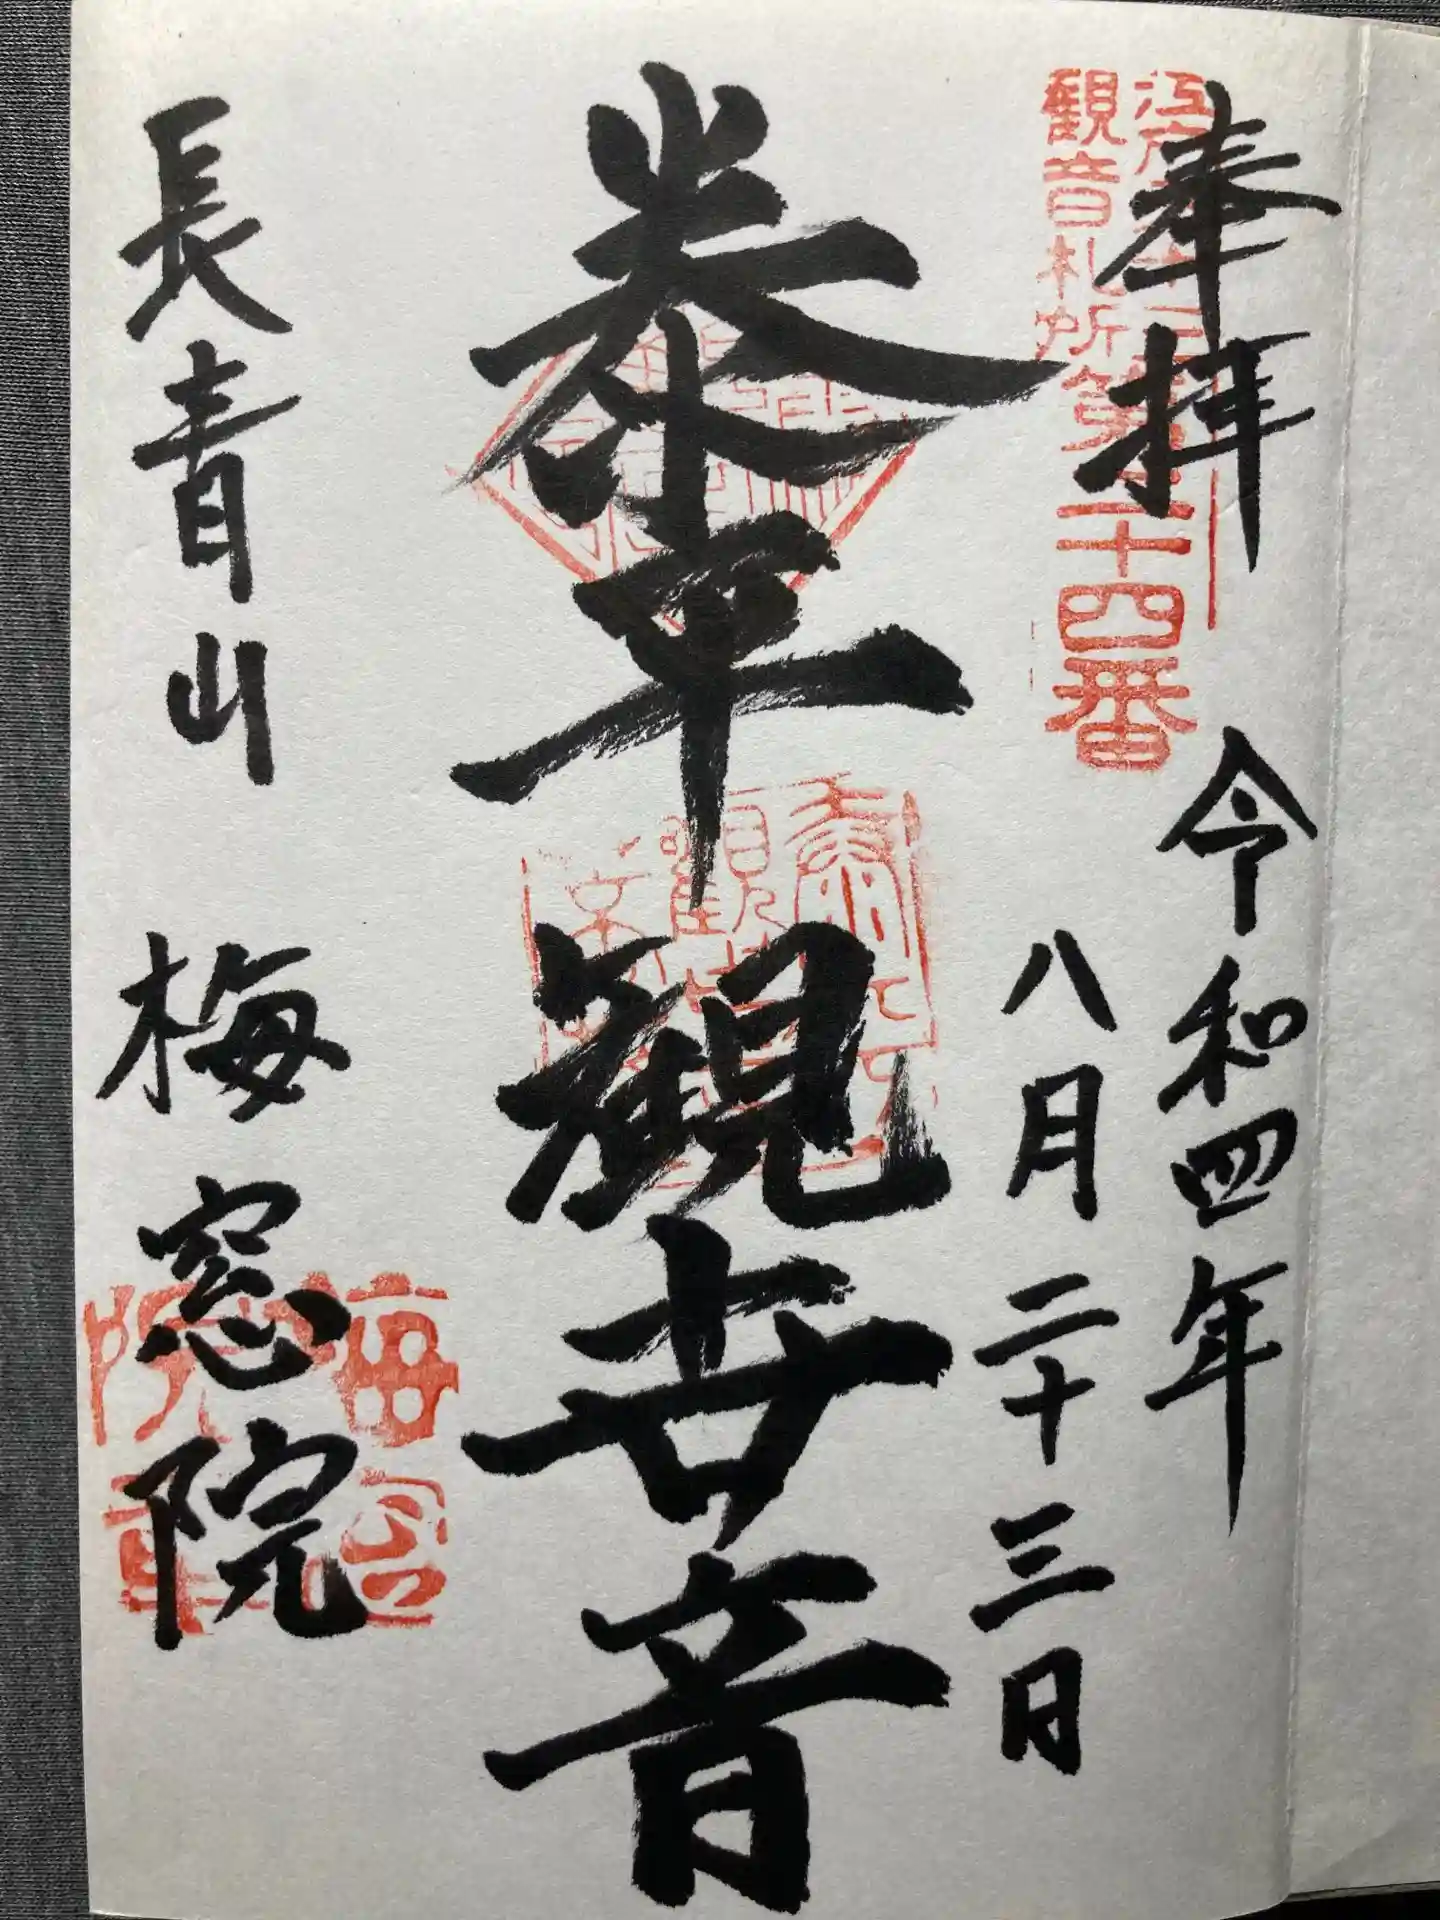 奉拝
令和四年
八月二十三日
観音札所第二十四番
泰平観世音
長青山
梅窓院